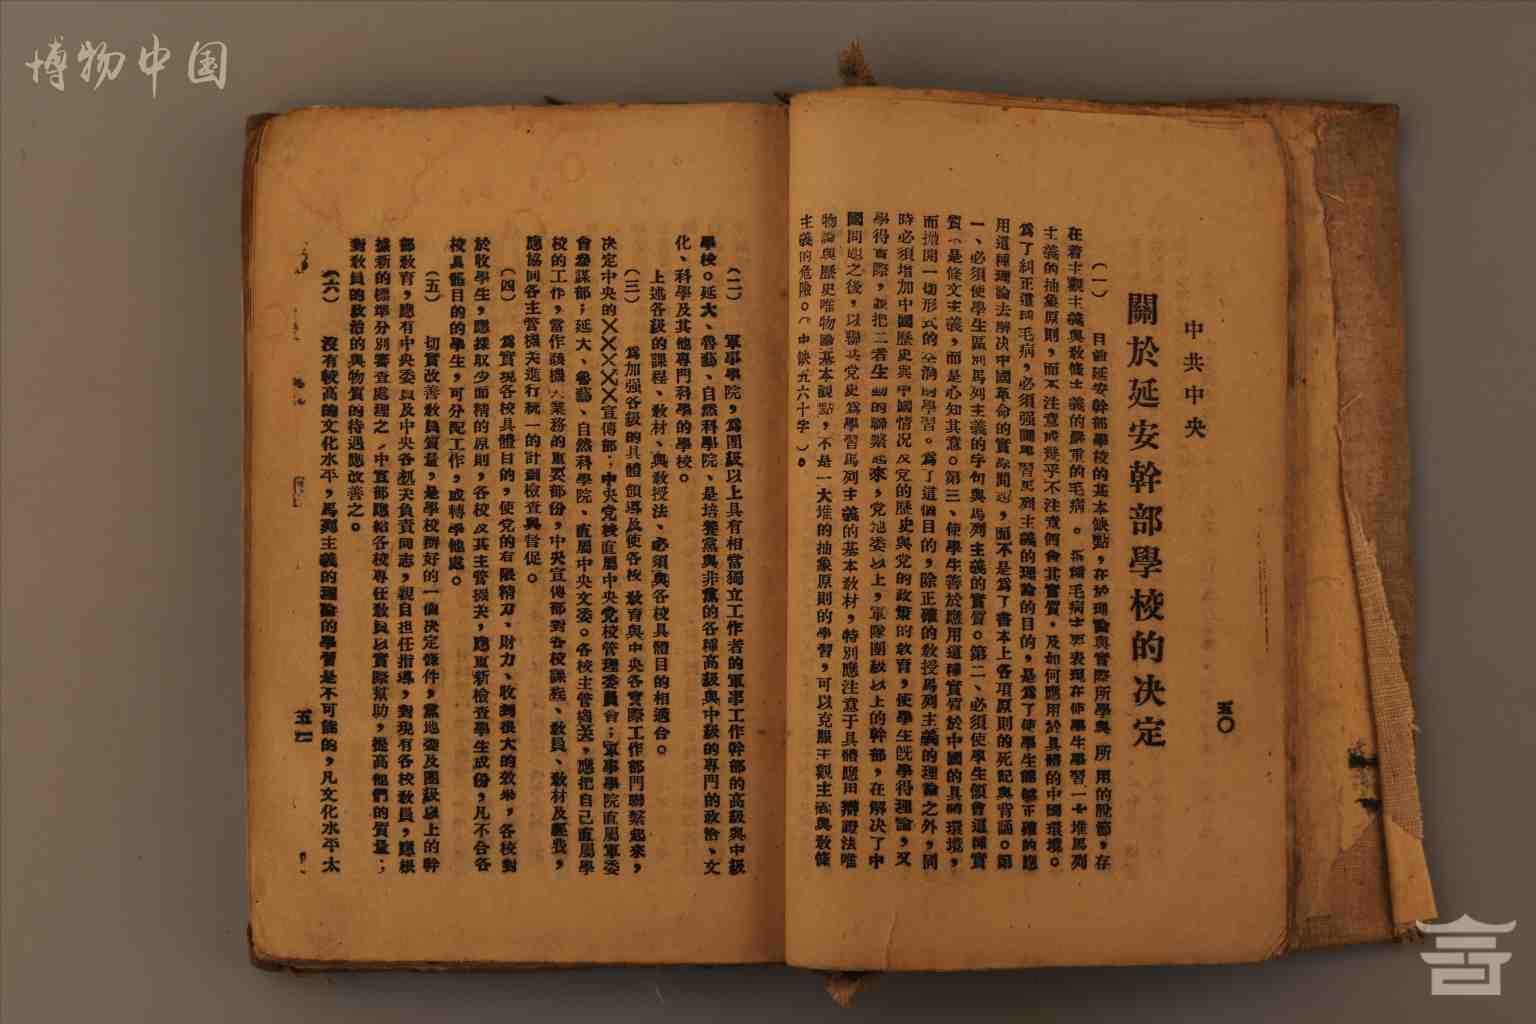 博物中国
五〇
中共中央
關於延安幹部學校的决定
(一) 目前延安幹部學校的基本缺點,在於理論與實際所學與所用的脫節,存
在着主觀主義與教條主義的嚴重的毛病。這種毛病主要表現在使學生學習一大堆馬列
主義的抽象原則,而不注意或幾乎不注意領會其實質,及如何應用於具體的中國環境。
爲了糾正這種毛病,必須强調學習馬列主義的理論的目的,是爲了使學生能够正確的應
用這種理論去解决中國革命的實際問題,而不是爲了書本上各項原則的死記與背誦。第
一、必須使學生區別馬列主義的字句與馬列主義的實質。第二、必須使學生領會這種實
質,是條文主義,而是心知其意。第三、使學生善於應用這種實質於中國的具體環境,
而擯開一切形式的空洞的學習。爲了這個目的,除正確的教授馬列主義的理論之外,同
時必須增加中國歷史與中國情况及党的歷史與党的政策的教育,使學生旣學得理論,又
學得實際,並把二者生動的聯繫起來,党地委以上,軍隊團級以上的幹部,在解决了中
國問題之後,以聯共党史爲學習馬列主義的基本教材,特別應注意于具體應用辯證法唯
物論與歷史唯物論基本觀點,不是一大堆的抽象原則的學習,可以克服主觀主義與教條
主義的危險。(中缺五六十字)。
(二) 軍事學院,爲團級以上具有相當獨立工作者的軍事工作幹部的高級與中級
學校。延大、魯藝、自然科學院、是培養黨與非黨的各種高級與中級的專門的政治、文
化、科學及其他專門科學的學校。
上述各級的課程、教材、與教授法、必須與各校具體目的相適合。
(三) 爲加强各級的具體領導及使各校教育與中央各實際工作部門聯繫起來,
决定中央的××××××宣傳部;中央党校直屬中央党校管理委員會;軍事學院直屬軍委
會參謀部;延大、魯藝、自然科學院、直屬中央文委。各校主管機关,應把自己直屬學
校的工作,當作該機关業務的重要部份,中央宣傳部對各校課程、教員、教材及經費,
應協同各主管機关進行統一的計劃檢查與督促。
(四) 爲實現各校具體目的,使党的有限精力、財力、收到很大的效果,各校對
於收學生,應採取少而精的原則,各校及其主管機关,應重新檢查學生成份,凡不合各
校具體目的的學生,可分配工作,或轉學他處。
(五) 切實改善教員質量,是學校辦好的一個决定條件,黨地委及團級以上的幹
部教育,應有中央委員及中央各機关負責同志,親自担任指導,對現有各校教員,應根
據新的標準分別審查處理之,中宣部應給各校專任教員以實際幫助,提高他們的質量;
對教員的政治的與物質的待遇應改善之。
(六) 沒有較高的文化水平,馬列主義的理論的學習是不可能的,凡文化水平太
五一